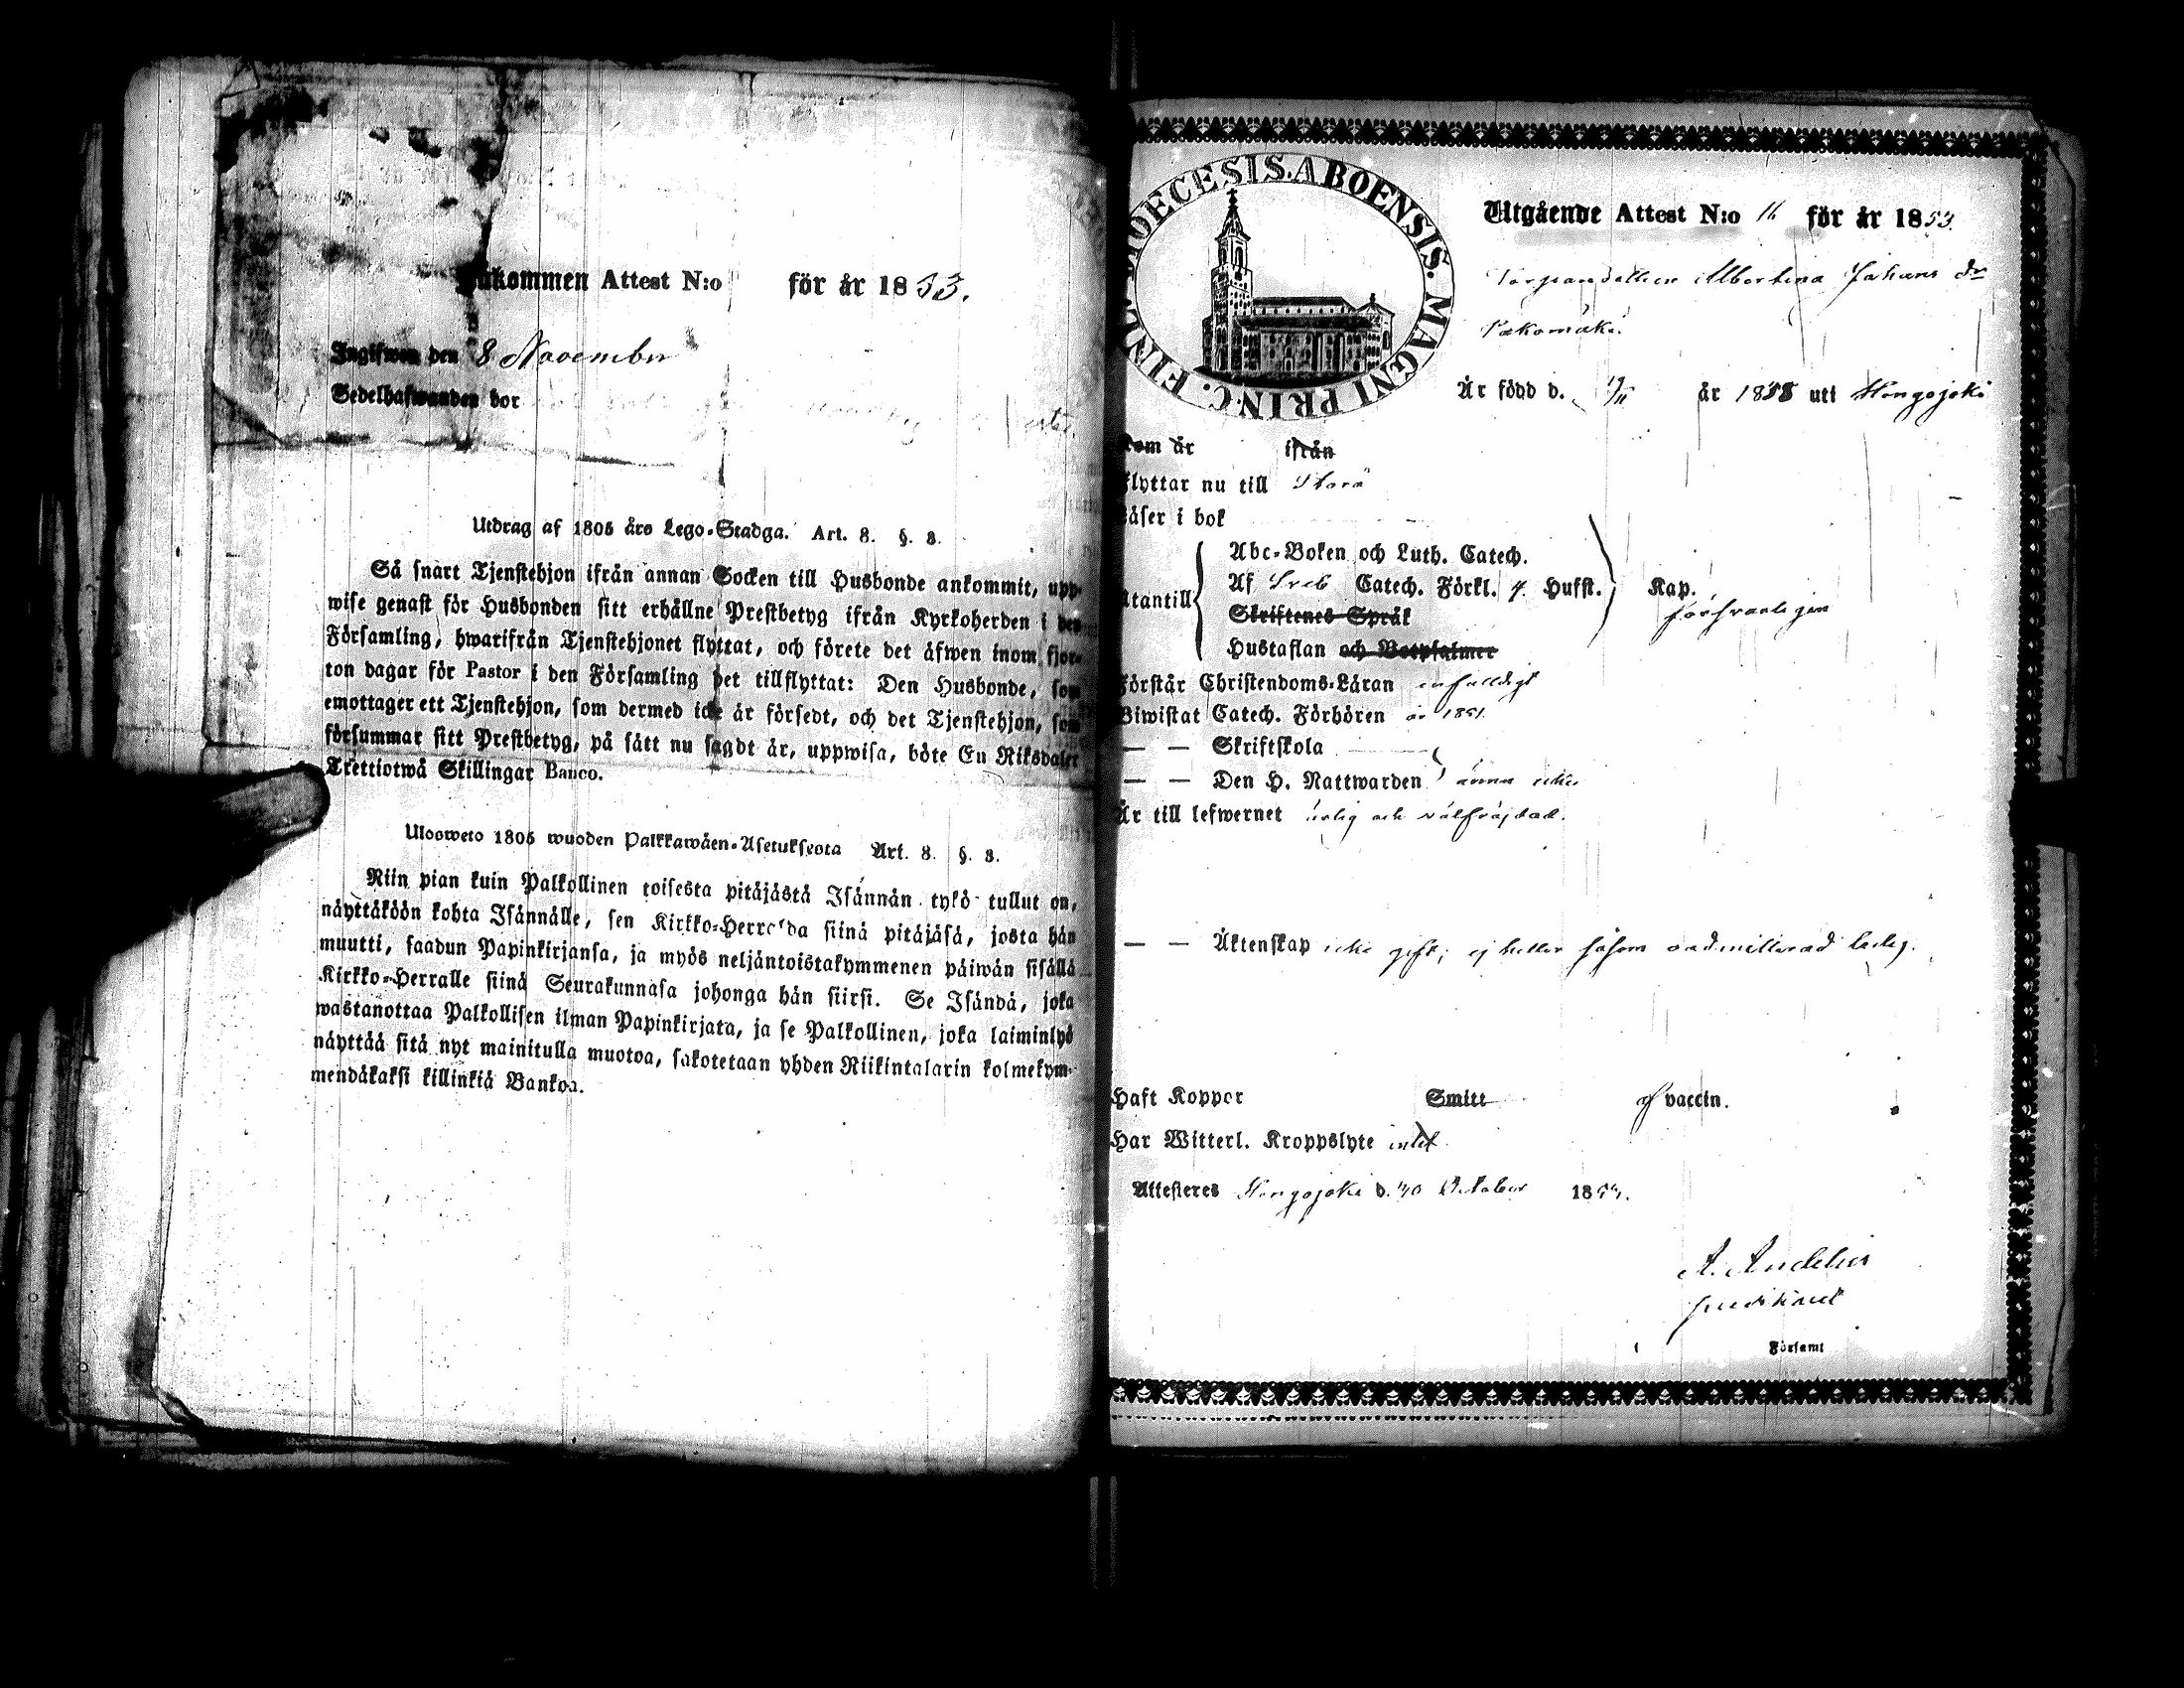 Inkommen Attest N:o för år 1853.
Ingifwen den 8 November
Sedelhafwanden bor
Utdrag af 1805 års Lego-Stadga. Art. 8. §. 8.
Så snart Tjenstehjon ifrån annan Socken till Husbonde ankommit, upp-
wise genast för Husbonden sitt erhållne Prestbetyg ifrån Kyrkoherden i den
Församling, hwarifrån Tjenstehjonet flyttat, och förete det äfwen inom fjor-
ton dagar för Pastor i den Församling det tillflyttat: Den Husbonde, som
emottager ett Tjenstehjon, som dermed icke är försedt, och det Tjenstehjon, som
försummar sitt Prestbetyg, på sätt nu sagdt är, uppwisa, böte En Riksdaler
Trettiotwå Skillingar Banco.
Ulosweto 1805 wuoden Palkkawäen-Asetuksesta Art. 8. §. 8.
Niin pian kuin Palkollinen toisesta pitäjästä Isännän tykö tullut on,
näyttäköön kohta Isännälle, sen Kirkko-Herralda siinä pitäjäsä, josta hän
muutti, saadun Papinkirjansa, ja myös neljäntoistakymmenen päiwän sisällä
Kirkko-Herralle siinä Seurakunnasa johonga hän siirsi. Se Isändä, joka
wastanottaa Palkollisen ilman Papinkirjata, ja se Palkollinen, joka laiminlyö
näyttää sitä nyt mainitulla muotoa, sakotetaan yhden Riikintalarin kolmekym-
mendäkaksi killinkiä Bankoa.
DIOECESIS. ABOENSIS. MAGNI PRIN.C. FINL.
Utgående Attest N:o 16 för år 1853.
Albertina Johans dr
Är född d. år 1838 uti Hongojoki
Kom år ifrån
Flyttar nu till Storå
Läser i bok
Utantill
Abc-Boken och Luth. Catech.
Af Sveb Catech. Förkl. 4 Hufst. Kap.
försvarligen
Skriftenes Språk
Hustaflan och Botpsalmer
Förstår Christendoms-Läran enfaldigt
Biwistat Catech. Förhören år 1851.
— — Skriftskola
— — Den H. Nattwarden ännu icke
Är till lefwernet ärlig och välfräjdad.
— — Äktenskap icke gift; ej heller såsom oadmitterad ledig.
Haft Koppor Smitt af vaccin.
Har Witterl. Kroppslyte intet
Attesteras Hongojoki d. 30 October 18
Församl